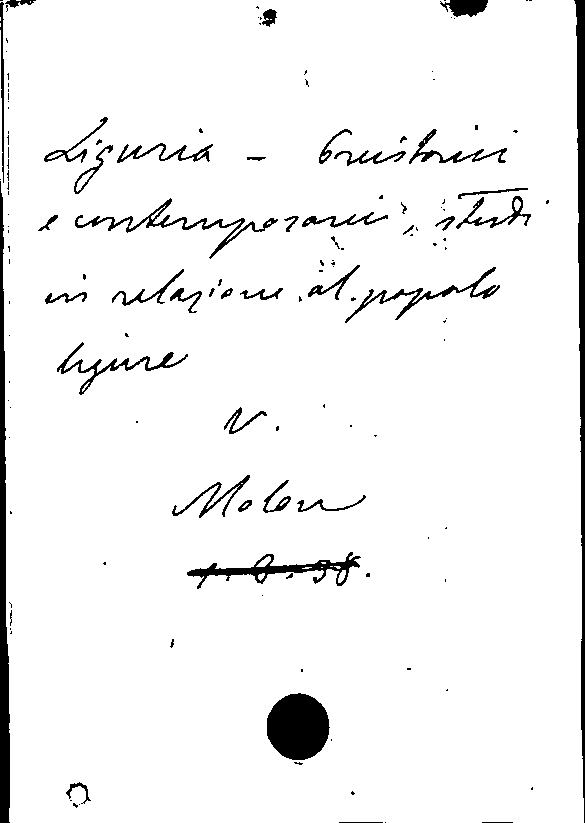 Liguria - Preistorici
e contemporanei, studi
in relazione al popolo
ligure
V.
Molon
1. 6. 38.